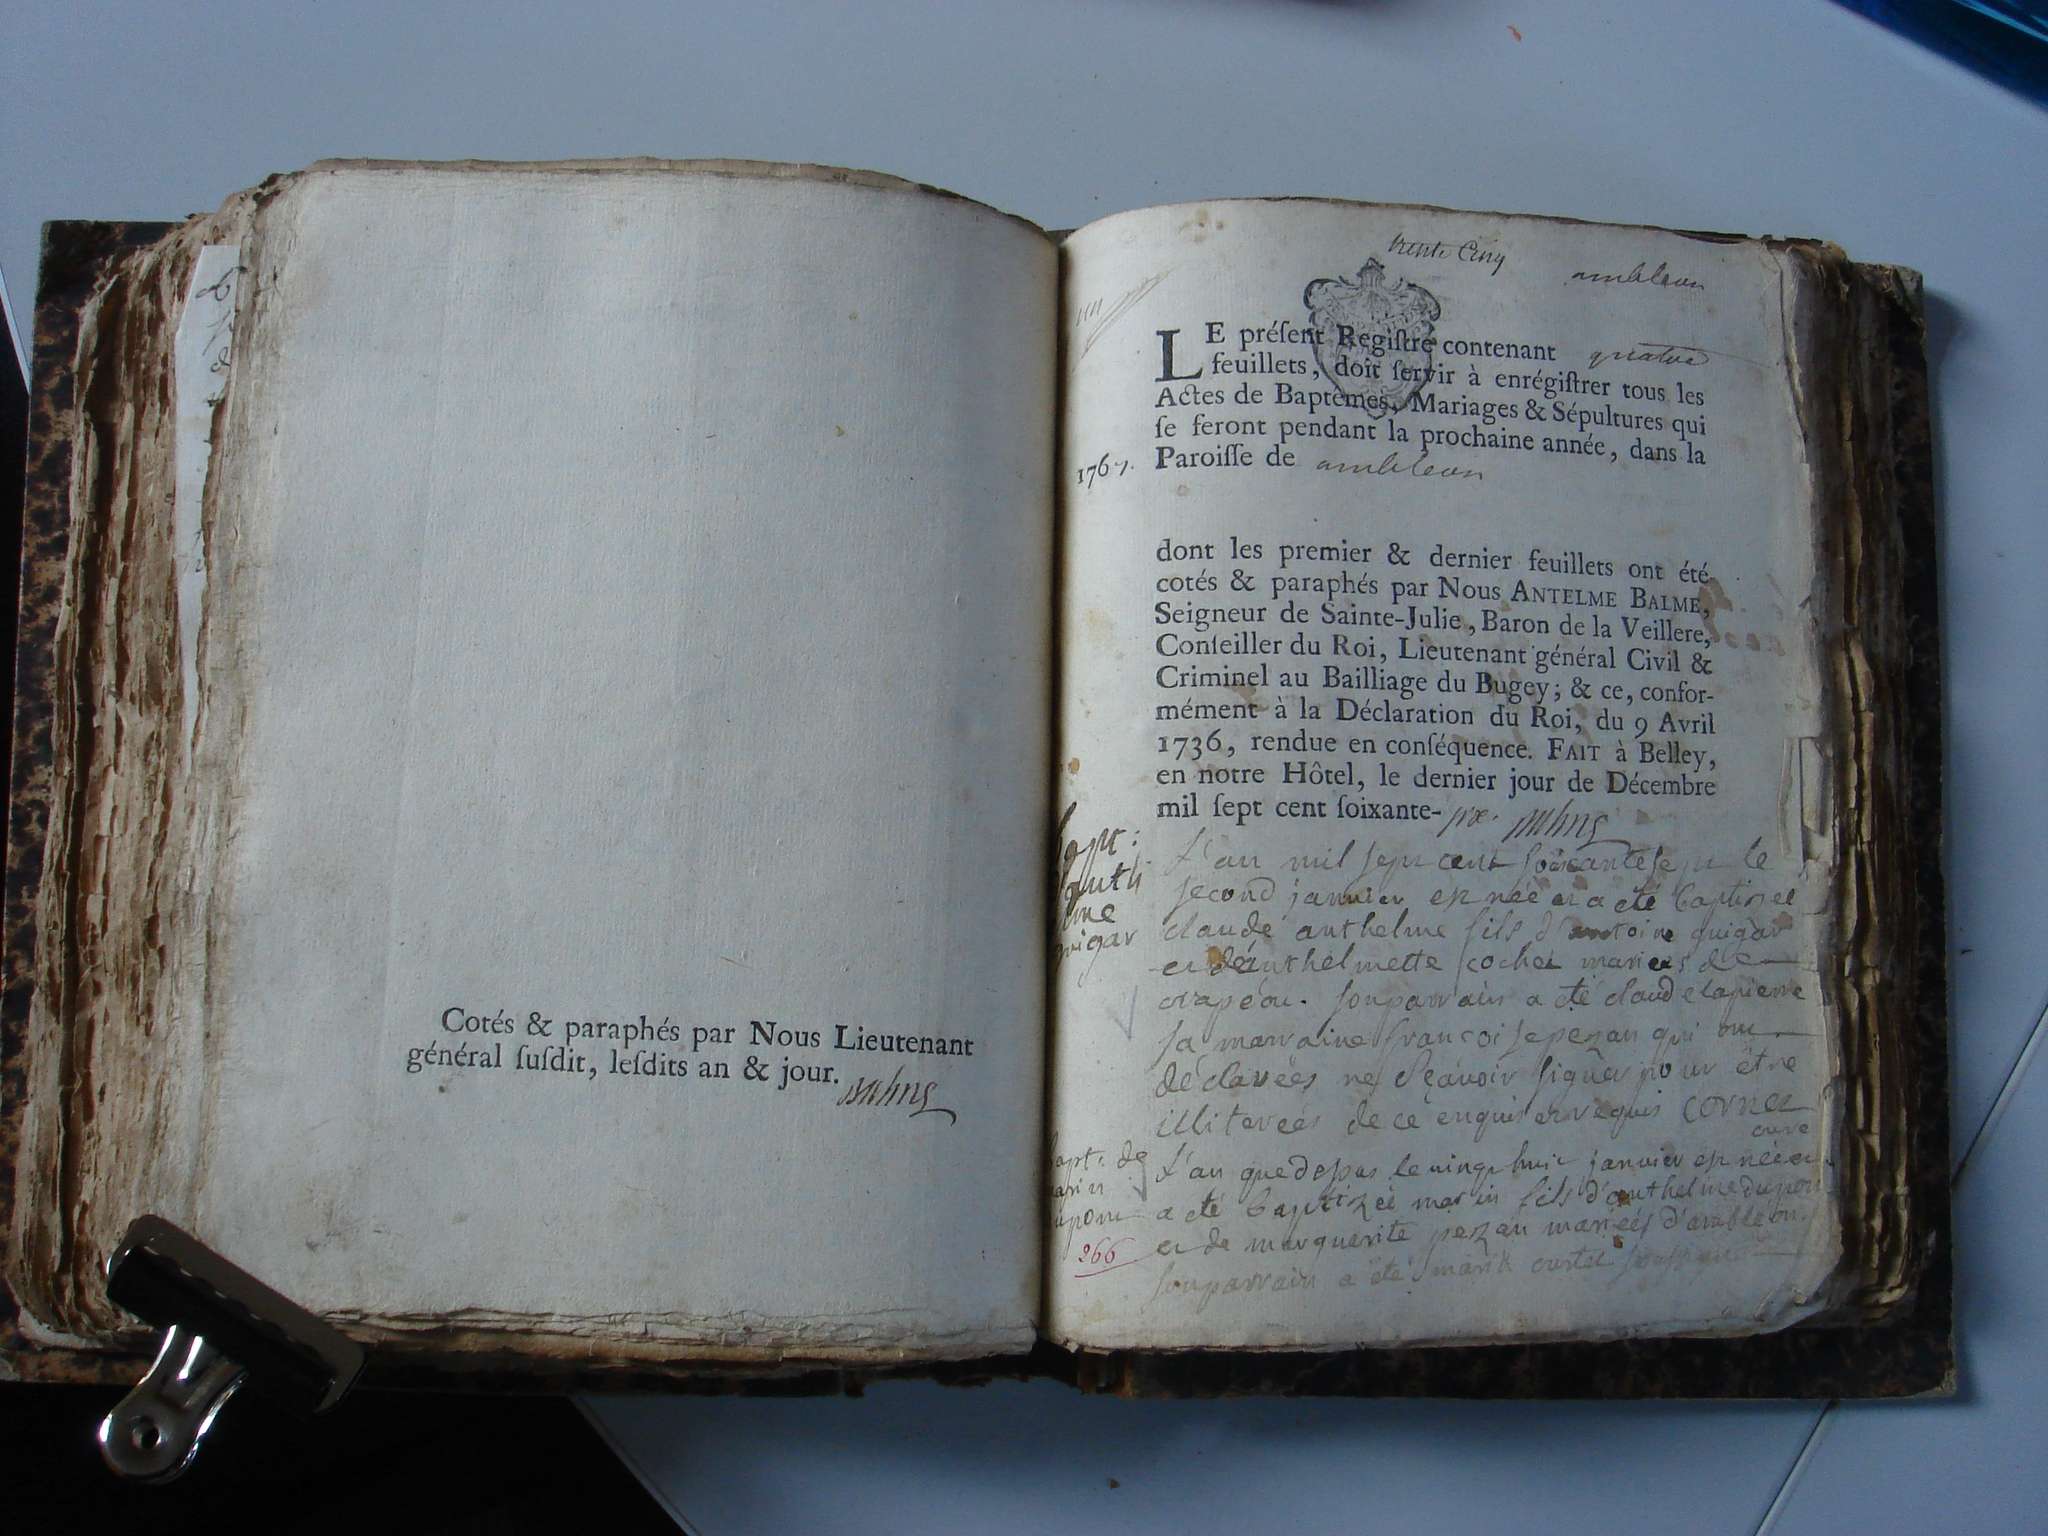 Cotés & paraphés par Nous Lieutenant
général ſuſdit, leſdits an & jour.
trente Cinq
ambleon
LE préſent Regiſtre contenant quatre
feuillets, doit ſervir à enrégiſtrer tous les
Actes de Baptêmes, Mariages & Sépultures qui
ſe feront pendant la prochaine année, dans la
1767. Paroiſſe de ambleon
dont les premier & dernier feuillets ont été
cotés & paraphés par Nous ANTELME BALME,
Seigneur de Sainte-Julie, Baron de la Veillere,
Conſeiller du Roi, Lieutenant général Civil &
Criminel au Bailliage du Bugey; & ce, confor-
mément à la Déclaration du Roi, du 9 Avril
1736, rendue en conſéquence. FAIT à Belley,
en notre Hôtel, le dernier jour de Décembre
mil ſept cent ſoixante-six.
L'an mil sept cent soixante sept le
second janvier est née et a eté baptizee
claude anthelme fils d'antoine guigar
et de anthelmette cochet mariees de
crapéou. son parrain a eté claude lapierre
sa marraine francoise pezan qui ont
déclarées ne scavoir signer pour être
illiterées de ce enquis et requis cornet
curé
L'an que dessus le vingt huit janvier est née et
a eté baptizée marin fils d'anthelme dupont
et de marguerite pezan mariees d'ambleon.
son parrain a eté marin
bapt:
anth
elme
guigar
bapt. de
marin
dupont
266